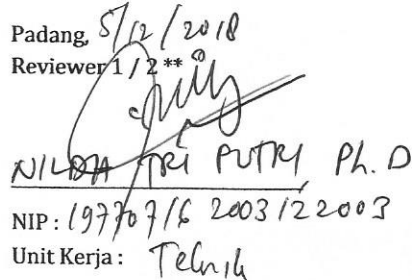 Padang, 5/12/2018
Reviewer 1 / 2 **
NILDA TRI PUTRI Ph.D
NIP : 197707162003122003
Unit Kerja : Teknik